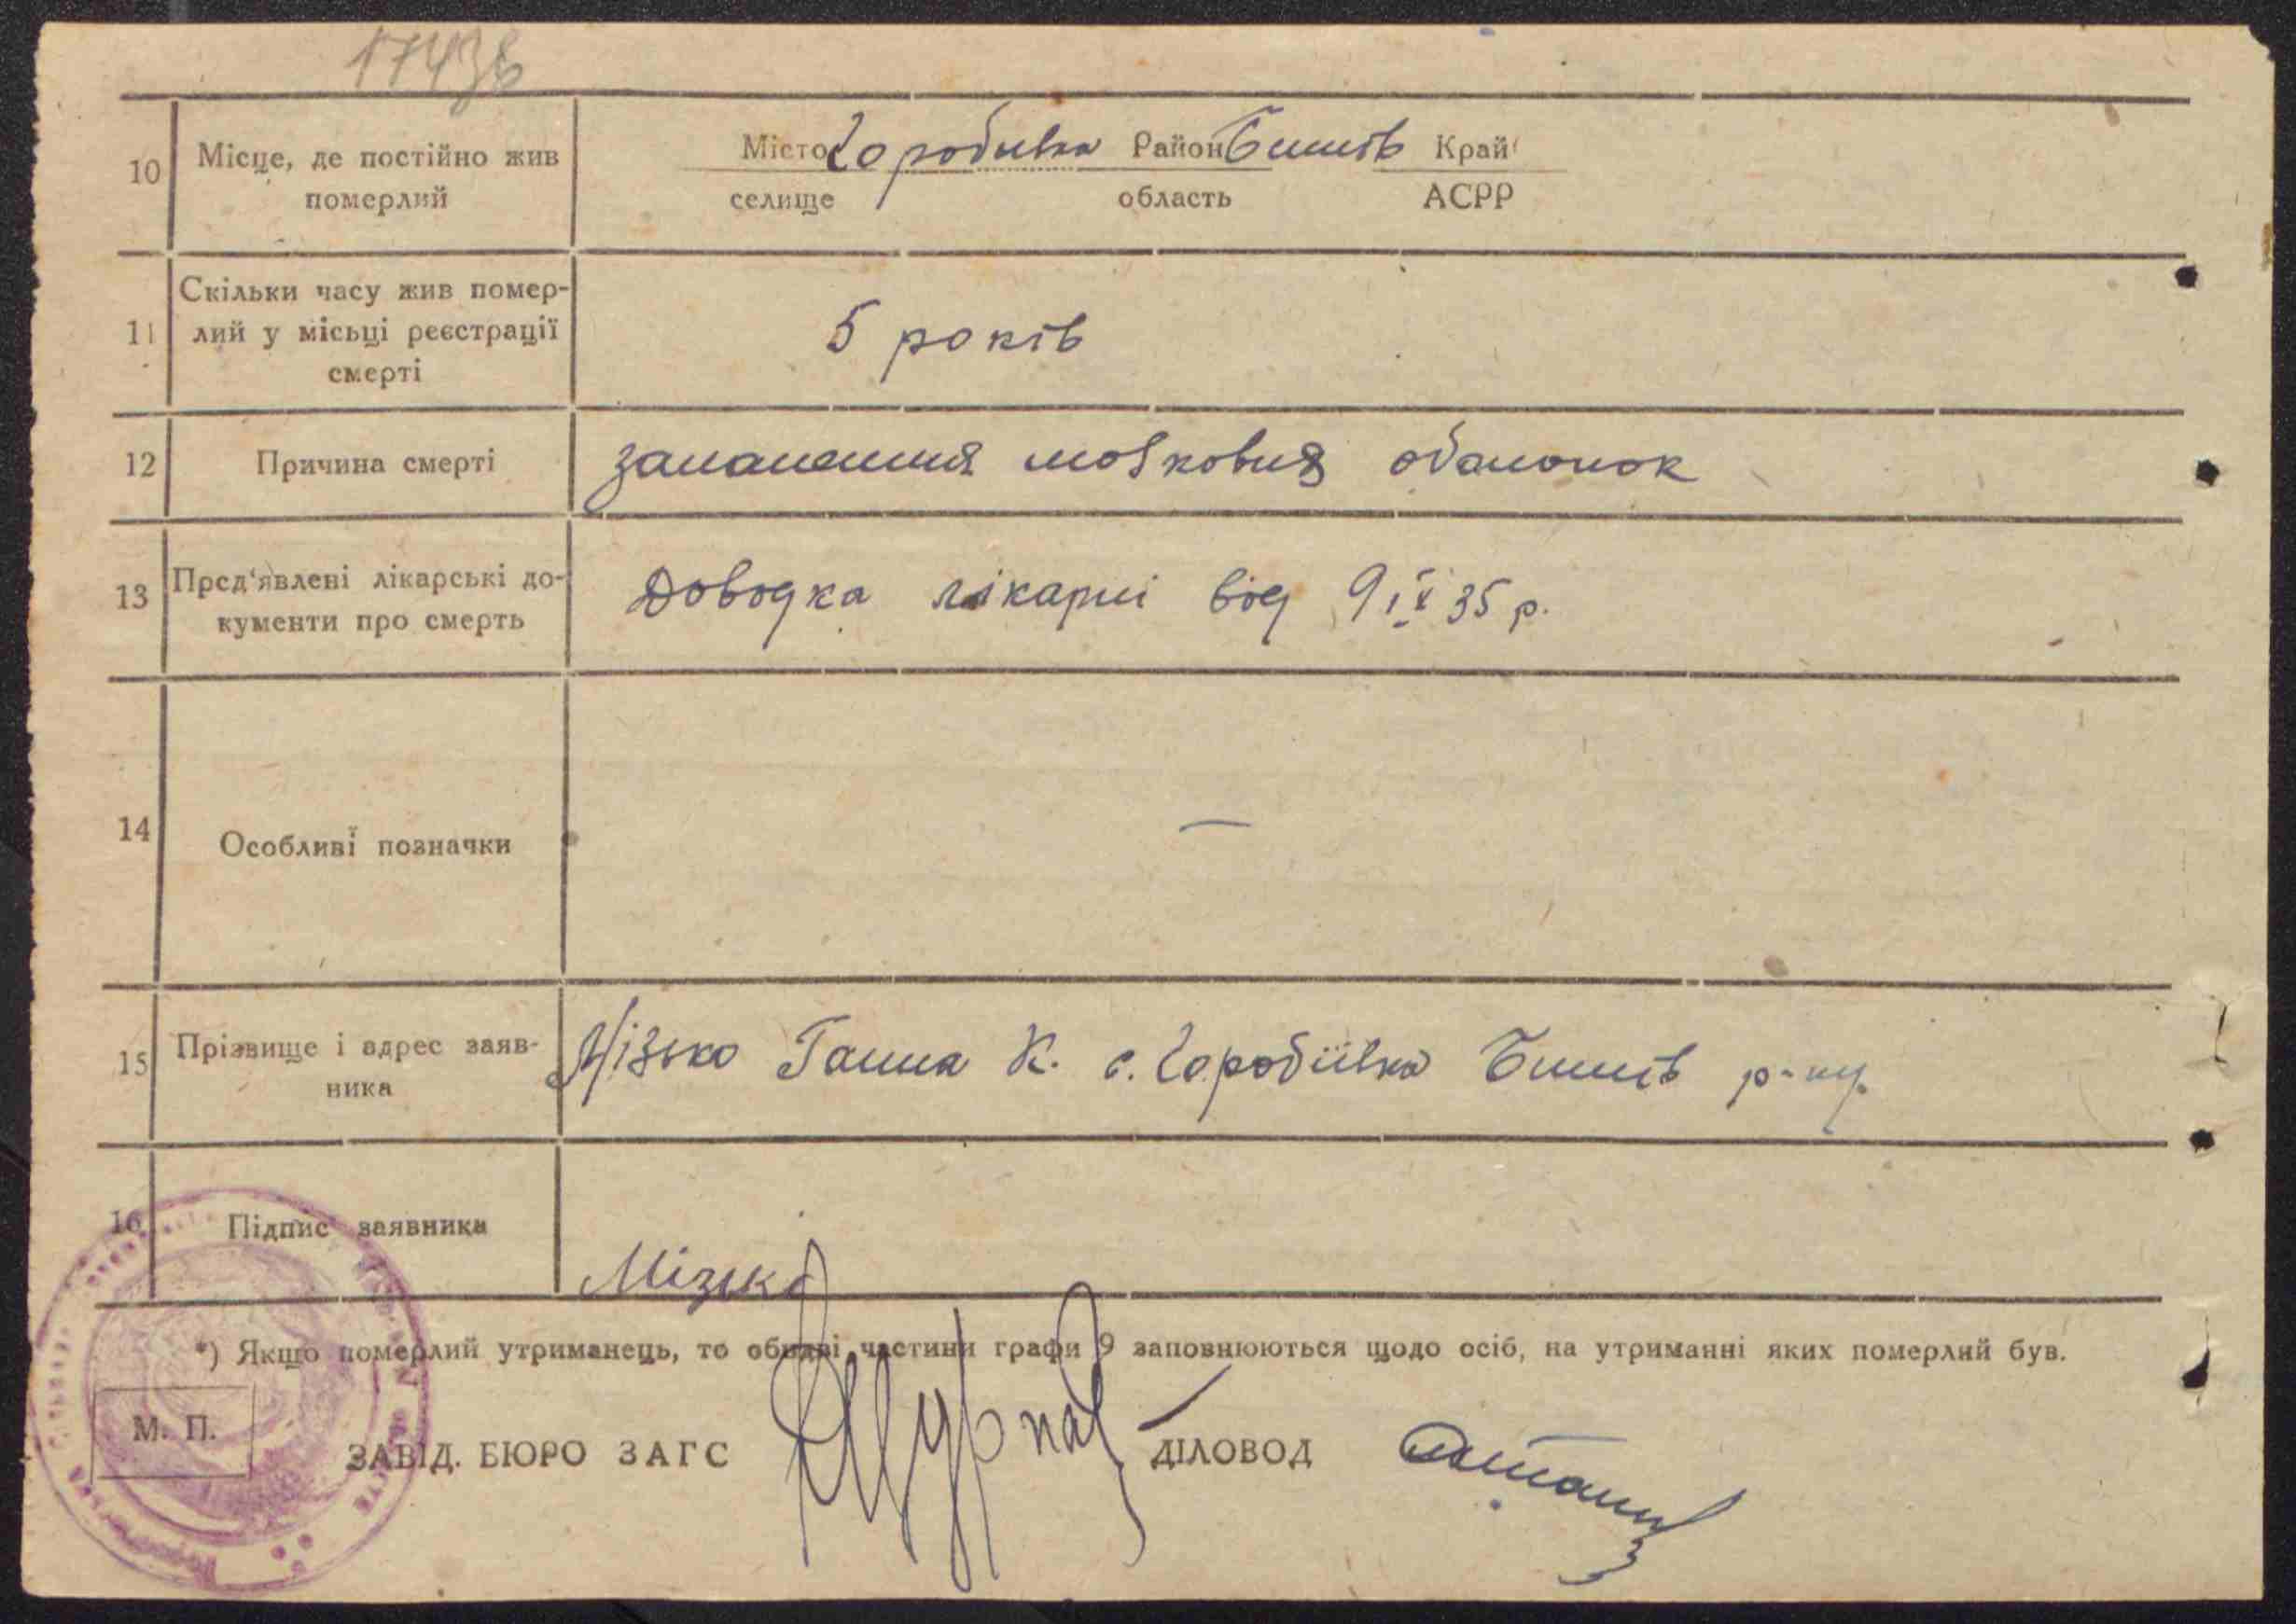 17436
10 Місце, де постійно жив померлий Місто Горобивка Район Бишів Край
селище область АСРР
11 Скільки часу жив помер-
лий у місьці реєстрації
смерті
5 років
12 Причина смерті запалення мозкових обалонок
13 Пред'явлені лікарські до-
кументи про смерть
Доводка лікарні від 9 IX 35 р.
14 Особливі позначки —
15 Прізвище і адрес заяв-
ника
Мізько Ганна К. с. Горобіївка Бишів р-ну
16 Підпис заявника
Мізько
*) Якщо померлий утриманець, то обидві частини графи 9 заповнюються щодо осіб, на утриманні яких померлий був.
М. П.
ЗАВІД. БЮРО ЗАГС ДІЛОВОД